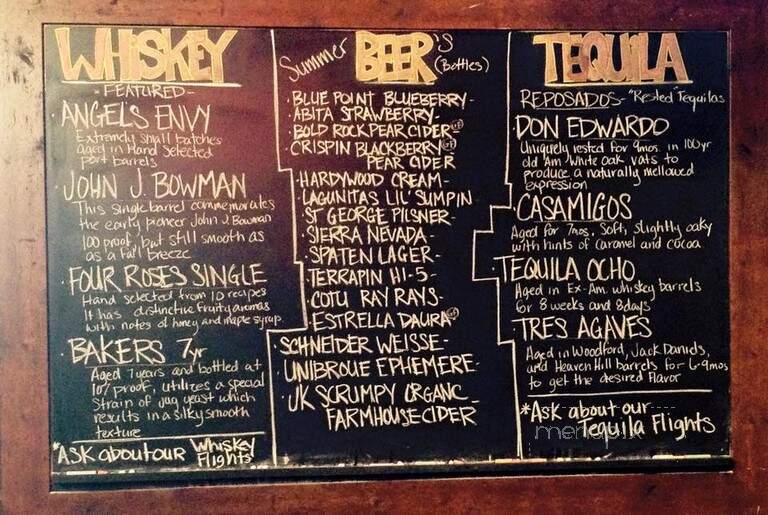 WHISKEY
- FEATURED -
ANGEL'S ENVY
Extremely small batches
aged in Hand Selected
port barrels
JOHN J. BOWMAN
This single barrel commemorates
the early pioneer John J. Bowman
100 proof, but still smooth as
as a fall breeze
FOUR ROSES SINGLE
Hand selected from 10 recipes
It has distinctive fruity aromas
with notes of honey and maple syrup
BAKERS 7yr
Aged 7 years and bottled at
107 proof, utilizes a special
Strain of jug yeast which
results in a silky smooth
texture
*ASK about our Whiskey
Flights
Summer BEER'S
(Bottles)
· BLUE POINT BLUEBERRY -
· ABITA STRAWBERRY -
· BOLD ROCK PEAR CIDER GF
· CRISPIN BLACKBERRY GF
PEAR CIDER
· HARDYWOOD CREAM -
· LAGUNITAS LIL' SUMPIN
· ST GEORGE PILSNER -
· SIERRA NEVADA -
· SPATEN LAGER -
· TERRAPIN HI-5 -
· COTU RAY RAYS -
· ESTRELLA DAURA GF
· SCHNEIDER WEISSE -
· UNIBROUE EPHEMERE -
· UK SCRUMPY ORGANC
FARMHOUSE CIDER
TEQUILA
REPOSADOS - "Rested" Tequilas
DON EDWARDO
Uniquely rested for 9mos. in 100yr
old Am. White Oak vats to
produce a naturally mellowed
expression
CASAMIGOS
Aged for 7mos. Soft, slightly oaky
with hints of caramel and cocoa
TEQUILA OCHO
Aged in Ex-Am. whiskey barrels
for 8 weeks and 8 days
TRES AGAVES
Aged in Woodford, Jack Daniels,
and Heaven Hill barrels for 6-9mos
to get the desired flavor
*Ask about our
Tequila Flights